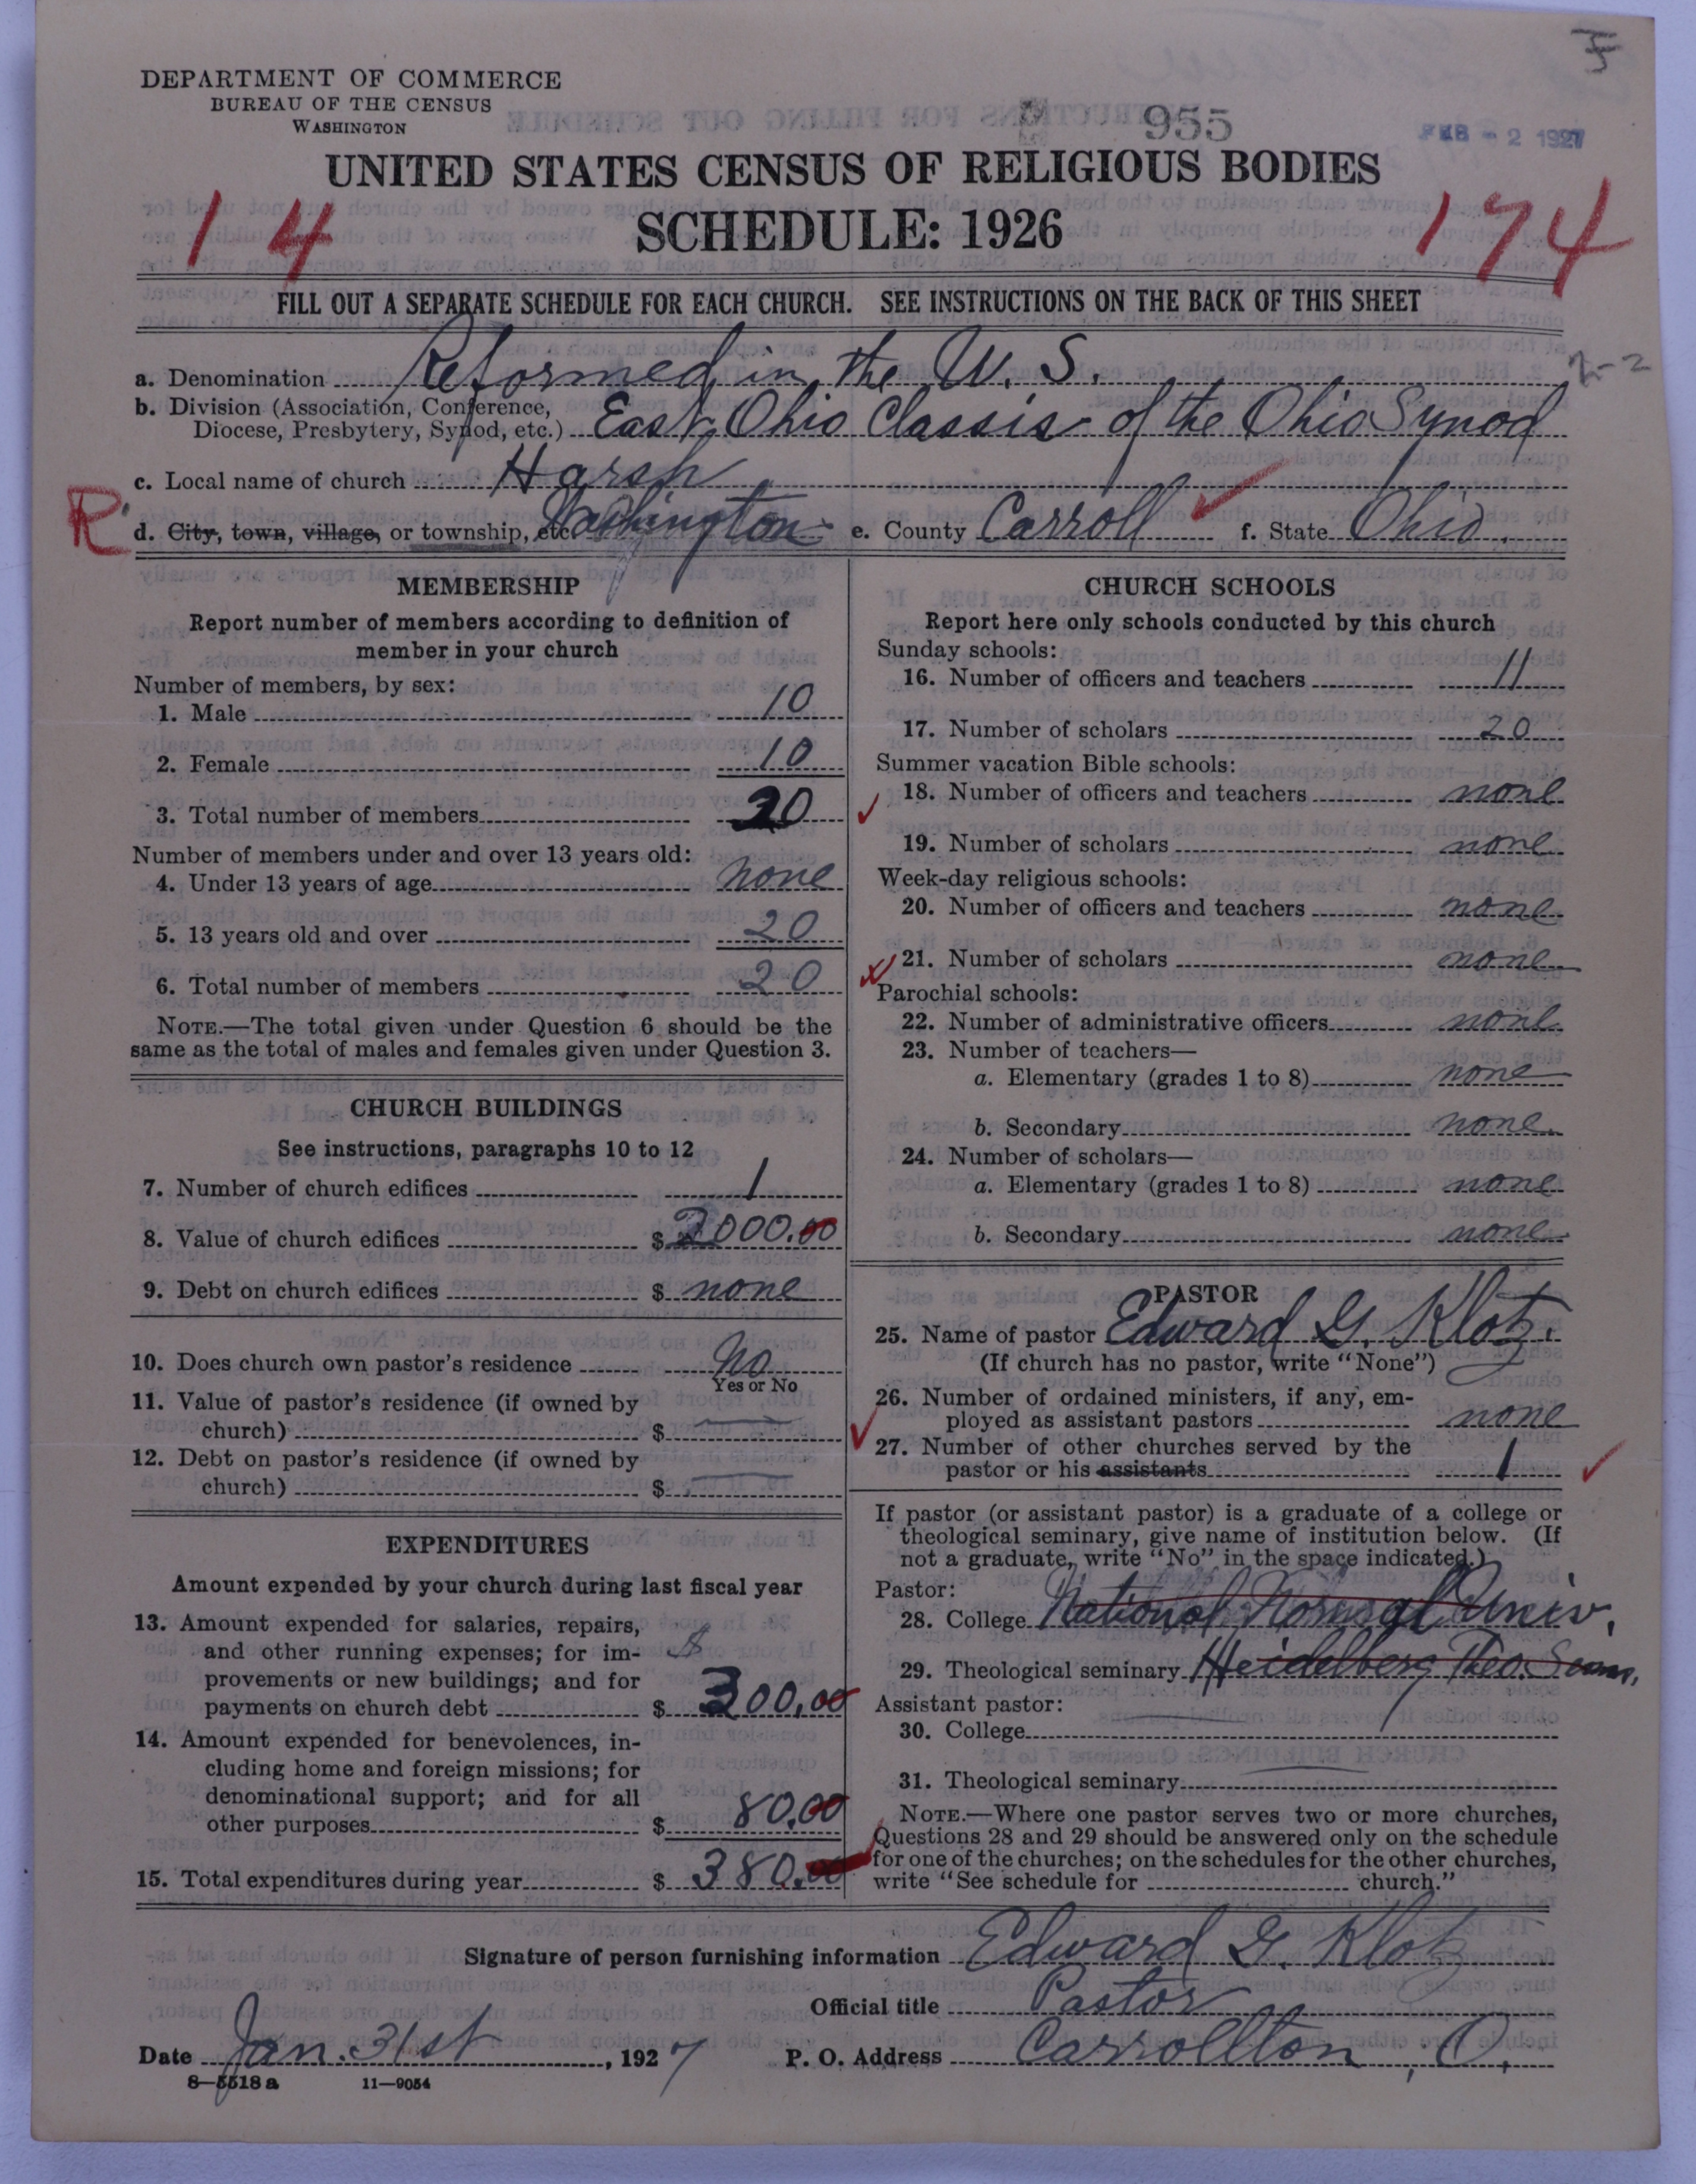 DEPARTMENT OF COMMERCE
BUREAU OF THE CENSUS
WASHINGTON
955
FEB - 2 1927
UNITED STATES CENSUS OF RELIGIOUS BODIES
SCHEDULE: 1926
14
174
FILL OUT A SEPARATE SCHEDULE FOR EACH CHURCH. SEE INSTRUCTIONS ON THE BACK OF THIS SHEET
a. Denomination Reformed in the U. S.
2-2
b. Division (Association, Conference,
Diocese, Presbytery, Synod, etc.) East Ohio Classis of the Ohio Synod
c. Local name of church Harsh
R
d. City, town, village, or township, etc. Washington e. County Carroll f. State Ohio.
MEMBERSHIP
Report number of members according to definition of
member in your church
Number of members, by sex:
1. Male 10
2. Female 10
3. Total number of members 20
Number of members under and over 13 years old:
4. Under 13 years of age none
5. 13 years old and over 20
6. Total number of members 20
NOTE.—The total given under Question 6 should be the
same as the total of males and females given under Question 3.
CHURCH BUILDINGS
See instructions, paragraphs 10 to 12
7. Number of church edifices 1
8. Value of church edifices $ 2000.00
9. Debt on church edifices $ none
10. Does church own pastor's residence No
Yes or No
11. Value of pastor's residence (if owned by
church) $
12. Debt on pastor's residence (if owned by
church) $
EXPENDITURES
Amount expended by your church during last fiscal year
13. Amount expended for salaries, repairs,
and other running expenses; for im-
provements or new buildings; and for
payments on church debt $ 300.00
14. Amount expended for benevolences, in-
cluding home and foreign missions; for
denominational support; and for all
other purposes $ 80.00
15. Total expenditures during year $ 380.00
CHURCH SCHOOLS
Report here only schools conducted by this church
Sunday schools:
16. Number of officers and teachers 11
17. Number of scholars 20
Summer vacation Bible schools:
18. Number of officers and teachers none
19. Number of scholars none
Week-day religious schools:
20. Number of officers and teachers none
21. Number of scholars none
Parochial schools:
22. Number of administrative officers none
23. Number of teachers—
a. Elementary (grades 1 to 8) none
b. Secondary none
24. Number of scholars—
a. Elementary (grades 1 to 8) none
b. Secondary none
PASTOR
25. Name of pastor Edward G. Klotz.
(If church has no pastor, write "None")
26. Number of ordained ministers, if any, em-
ployed as assistant pastors none
27. Number of other churches served by the
pastor or his assistants 1
If pastor (or assistant pastor) is a graduate of a college or
theological seminary, give name of institution below. (If
not a graduate, write "No" in the space indicated.)
Pastor:
28. College National Normal Univ.
29. Theological seminary Heidelberg Theo. Sem.
Assistant pastor:
30. College
31. Theological seminary
NOTE.—Where one pastor serves two or more churches,
Questions 28 and 29 should be answered only on the schedule
for one of the churches; on the schedules for the other churches,
write "See schedule for church."
Signature of person furnishing information Edward G. Klotz
Official title Pastor
Date Jan. 31st, 1927 P. O. Address Carrollton, O.
8—5518 a 11—9054